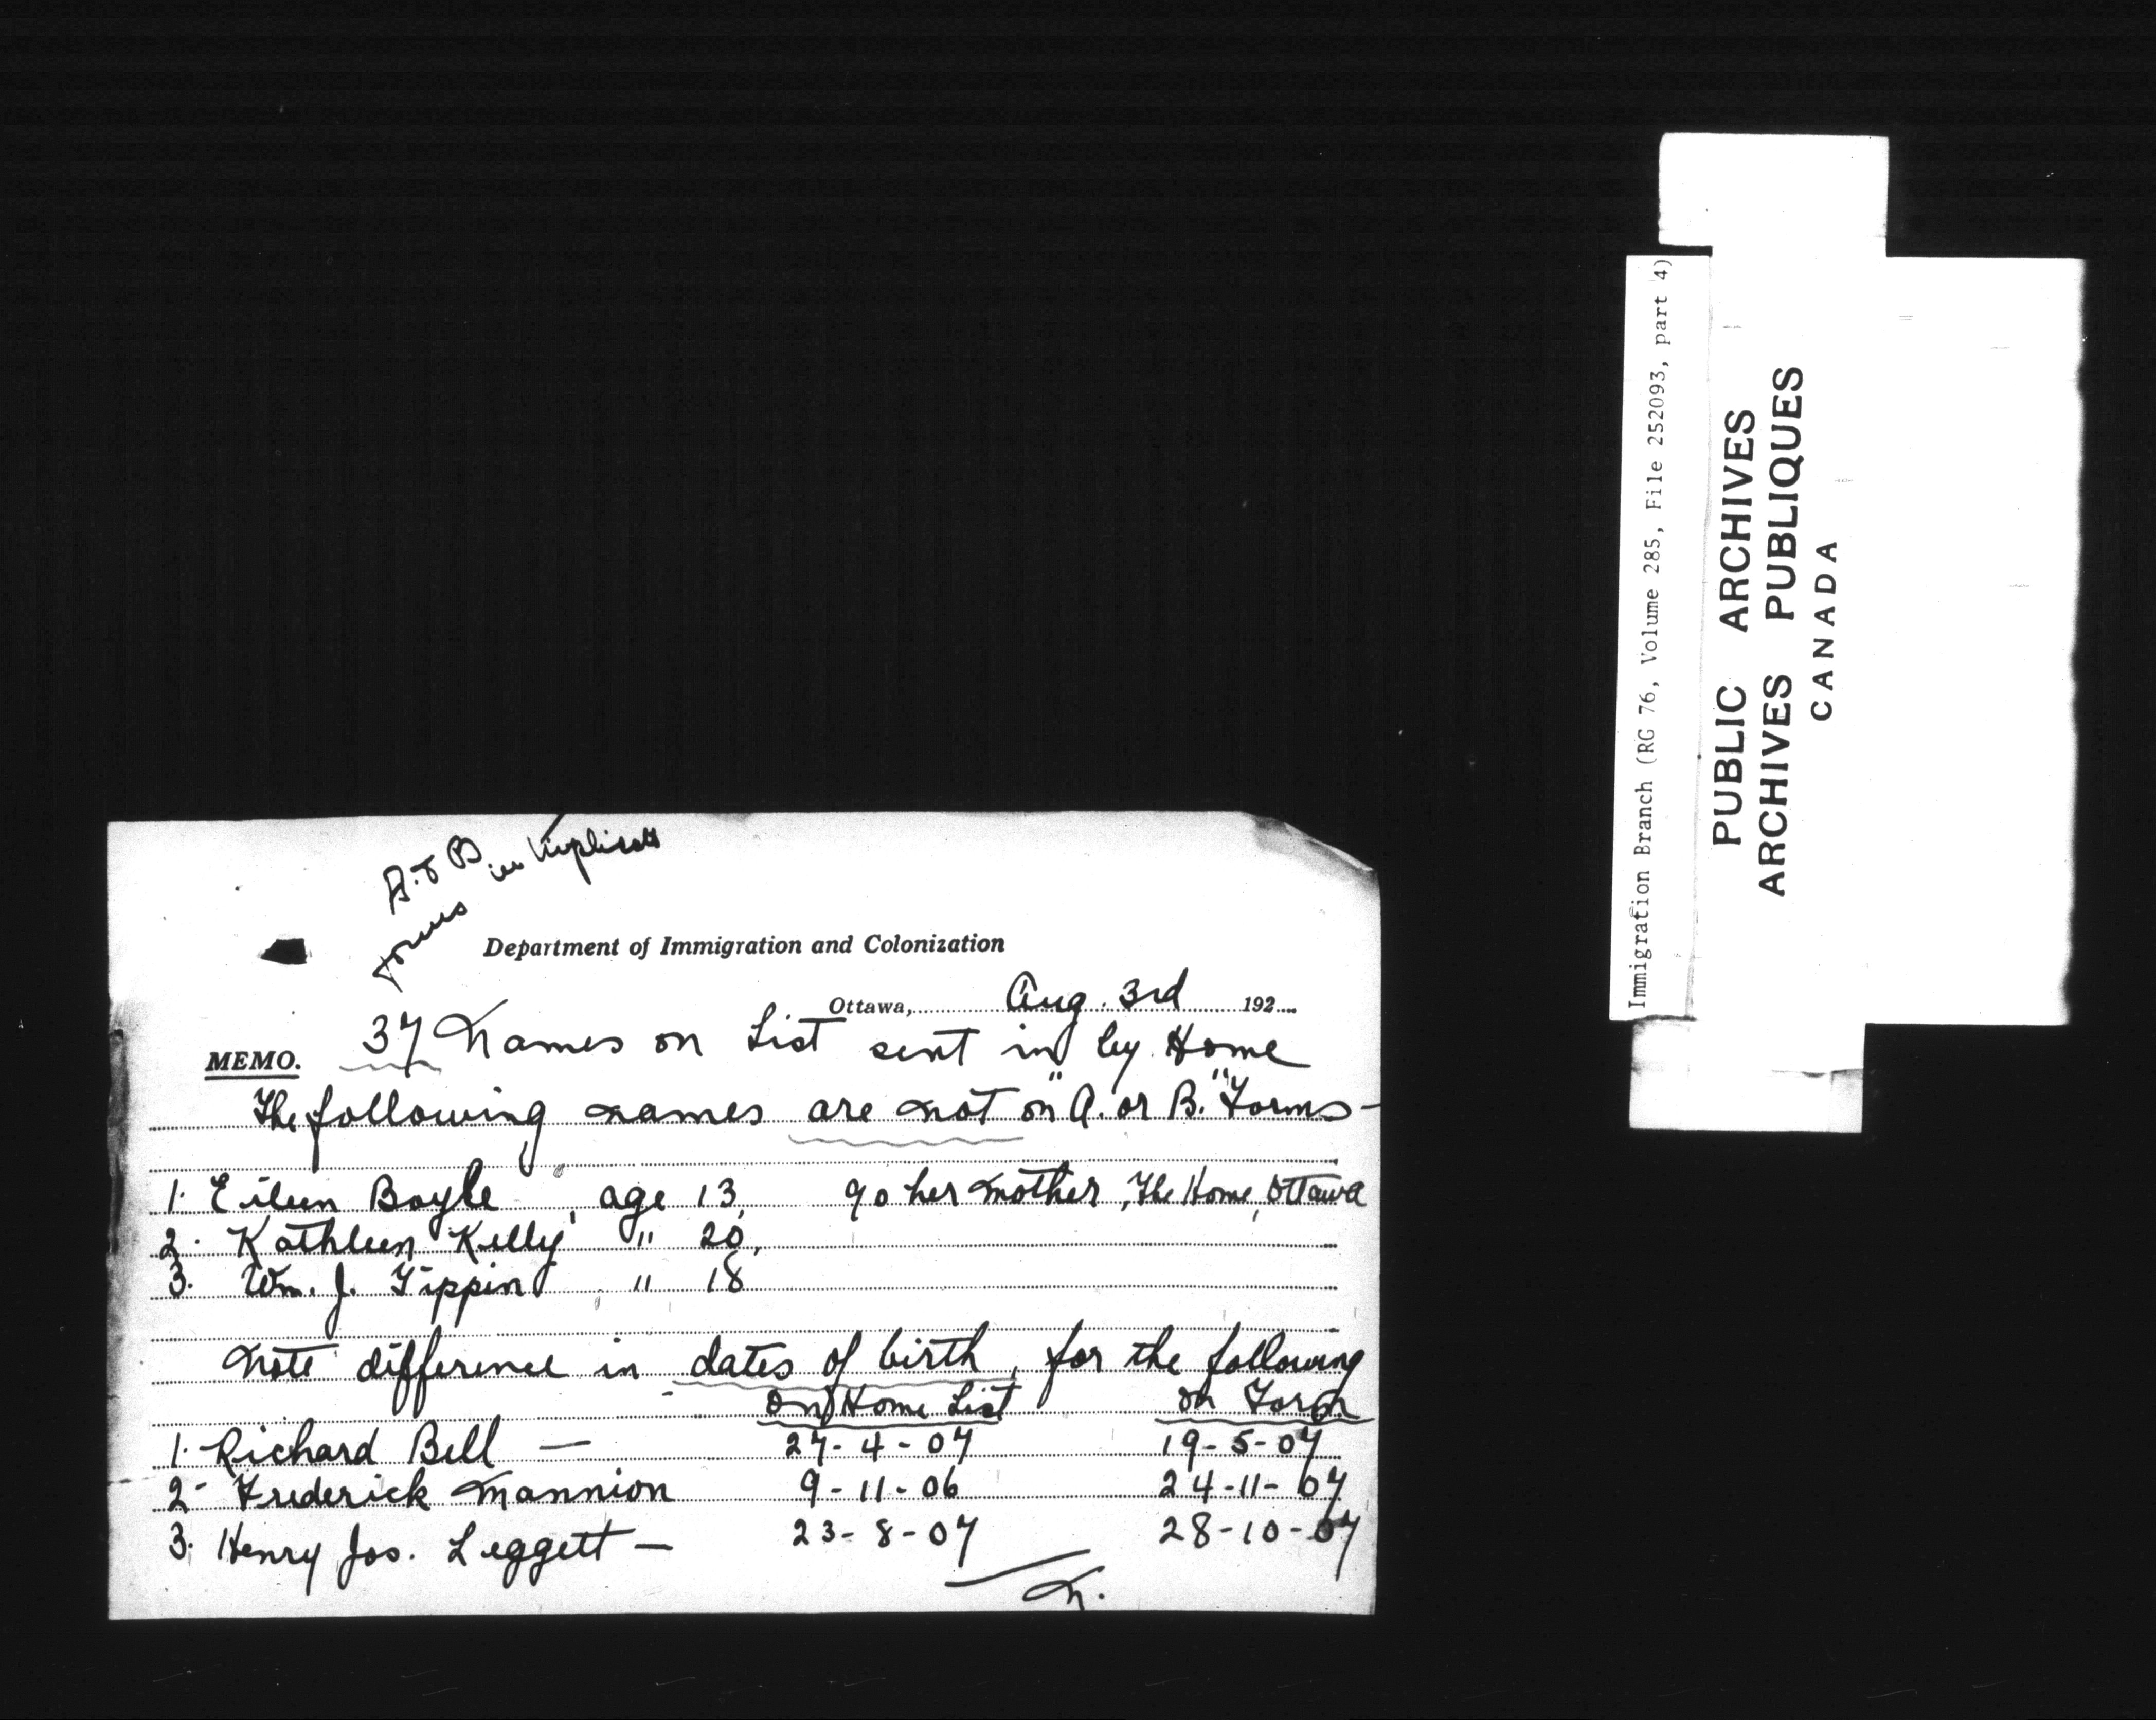 A. & B. forms in triplicate
Department of Immigration and Colonization
Ottawa, Aug. 3rd 192
MEMO. 37 Names on List sent in by Home
The following names are not on "A. or B." Forms -
1. Eileen Boyle, age 13, go her mother, The Home, Ottawa
2. Kathleen Kelly " 20,
3. Wm. J. Tippin " 18
Note difference in dates of birth, for the following
on Home List on Form
1. Richard Bell — 27-4-07 19-5-07
2- Frederick Mannion 9-11-06 24-11-07
3. Henry Jos. Leggett — 23-8-07 28-10-07
Immigration Branch (RG 76, Volume 285, File 252093, part 4)
PUBLIC ARCHIVES
ARCHIVES PUBLIQUES
CANADA